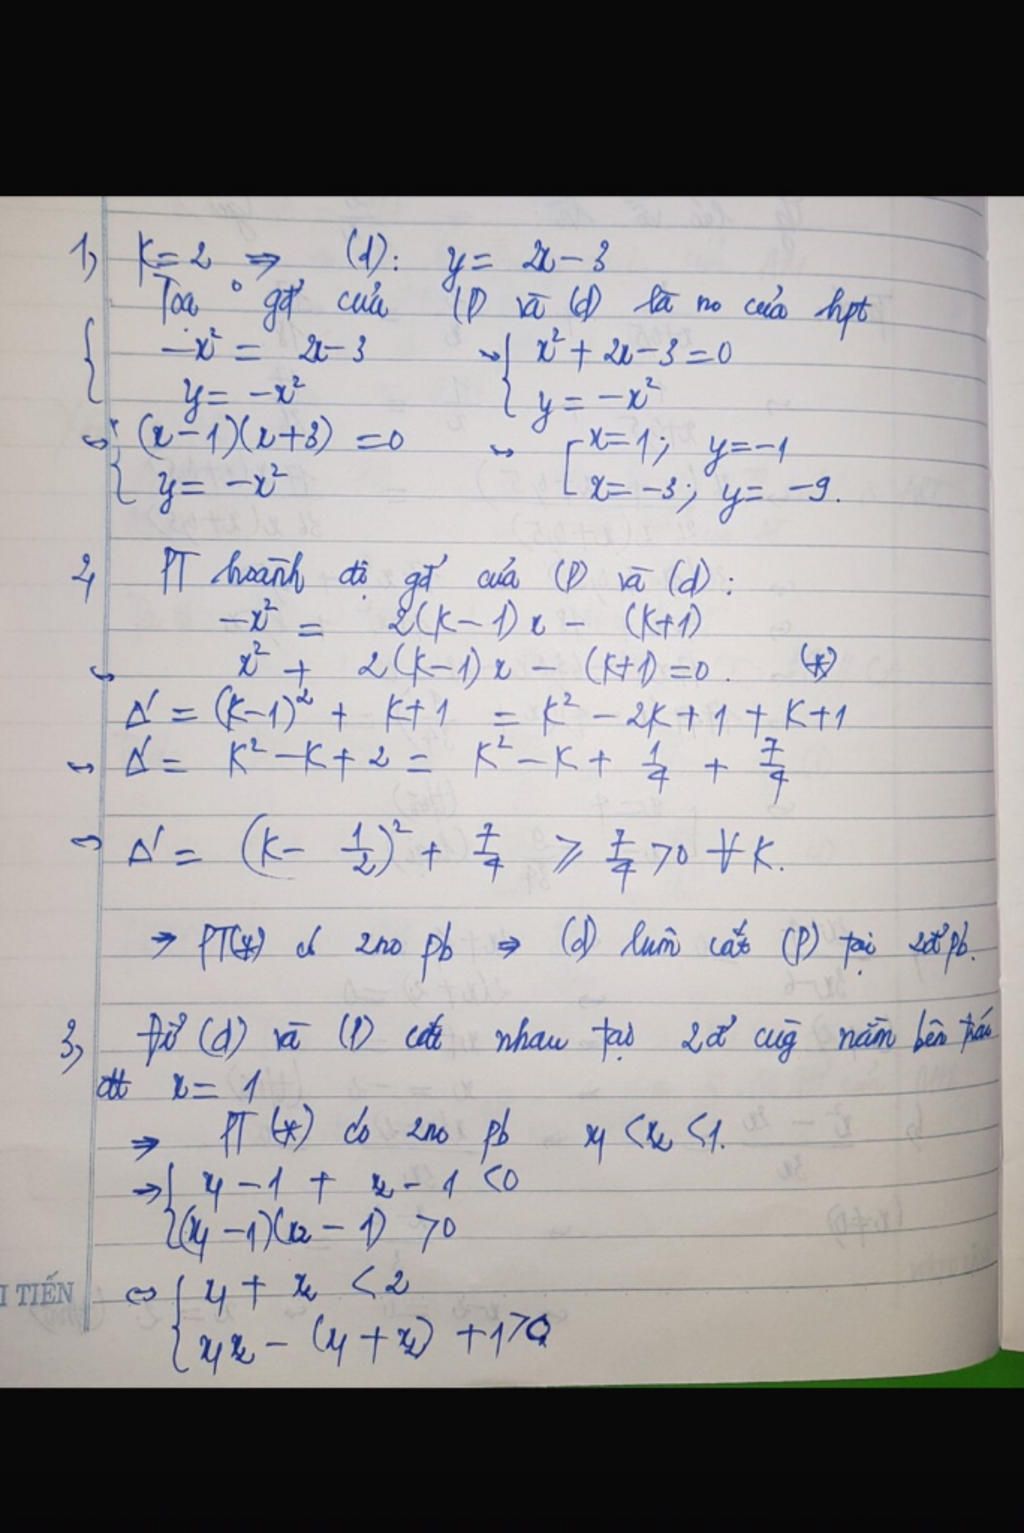 1, K=2 => (d): y = 2x-3
Toạ ° gđ' của (P) và (d) là no của hpt
{ -x² = 2x-3 <=> { x² + 2x-3=0
y = -x² y = -x²
<=> { (x-1)(x+3) =0 <=> [ x=1; y=-1
y= -x² x=-3; y= -9.
2, PT hoành độ gđ' của (P) và (d):
-x² = 2(K-1)x - (K+1)
<=> x² + 2(K-1)x - (K+1)=0. (*)
Δ' = (K-1)² + K+1 = K² - 2K+1+K+1
<=> Δ' = K²-K+2 = K²-K+ 1/4 + 7/4
<=> Δ' = (K- 1/2)² + 7/4 ⩾ 7/4 >0 ∀ K.
=> PT(*) có 2no pb => (d) luôn cắt (P) tại 2đ' pb.
3, Để (d) và (P) cắt nhau tại 2đ' cùg nằm bên trái
đt x= 1
=> PT (*) có 2no pb x₁ <x₂ <1.
=> { x₁-1 + x₂-1 <0
(x₁-1)(x₂-1) >0
<=> { x₁ + x₂ <2
x₁x₂ - (x₁+x₂) +1>0
I TIẾN